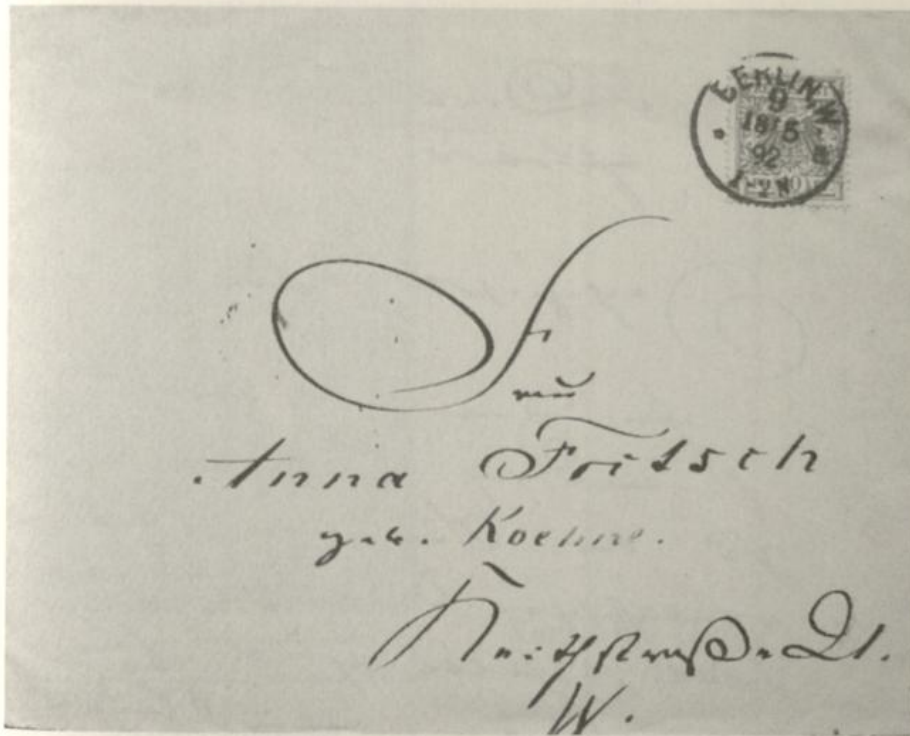 BERLIN W
9
18/5
92
1-2N
Frau
Anna Foitsch
geb. Koehne.
Keithstraße 21.
W.